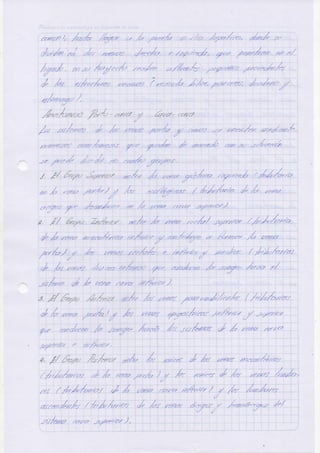 común), hasta llegar a la puerta o hilio hepático, donde se
dividen en dos ramas: derecha e izquierda, que penetran en el
hígado. En su trayecto reciben afluentes, pequeños procedentes
de las estructuras vecinas (vesícula biliar, páncreas, duodeno y
estómago).
Anastomosis Porto-cava y Cava-cava
Los sistemas de las venas porta y cavas se conectan mediante
numerosas anastomosis que quedan de acuerdo con su situación
se puede dividir en cuatro grupos.
1. El Grupo Superior entre la vena gástrica izquierda (tributaria
en la vena porta) y las esofágicas (tributaria de la vena
ácigos que desemboca en la vena cava superior).
2. El Grupo Inferior entre la vena rectal superior (tributaria
de la vena mesentérica inferior y contribuye a formar la vena
porta) y las venas rectales inferior y media (tributarias
de las venas ilíacas internas que conducen la sangre hacia el
sistema de la vena cava inferior).
3. El Grupo Anterior entre las venas paraumbilicales (tributarias
de la vena porta) y las venas epigástricas inferior y superior
que conducen la sangre hacia los sistemas de la vena cava
superior e inferior.
4. El Grupo Posterior entre las raíces de las venas mesentéricas
(tributarias de la vena porta) y las raíces de las venas lumba-
res (tributarias de la vena cava inferior) y las lumbares
ascendentes (tributarias de las venas ácigos y hemiácigos del
sistema cava superior).